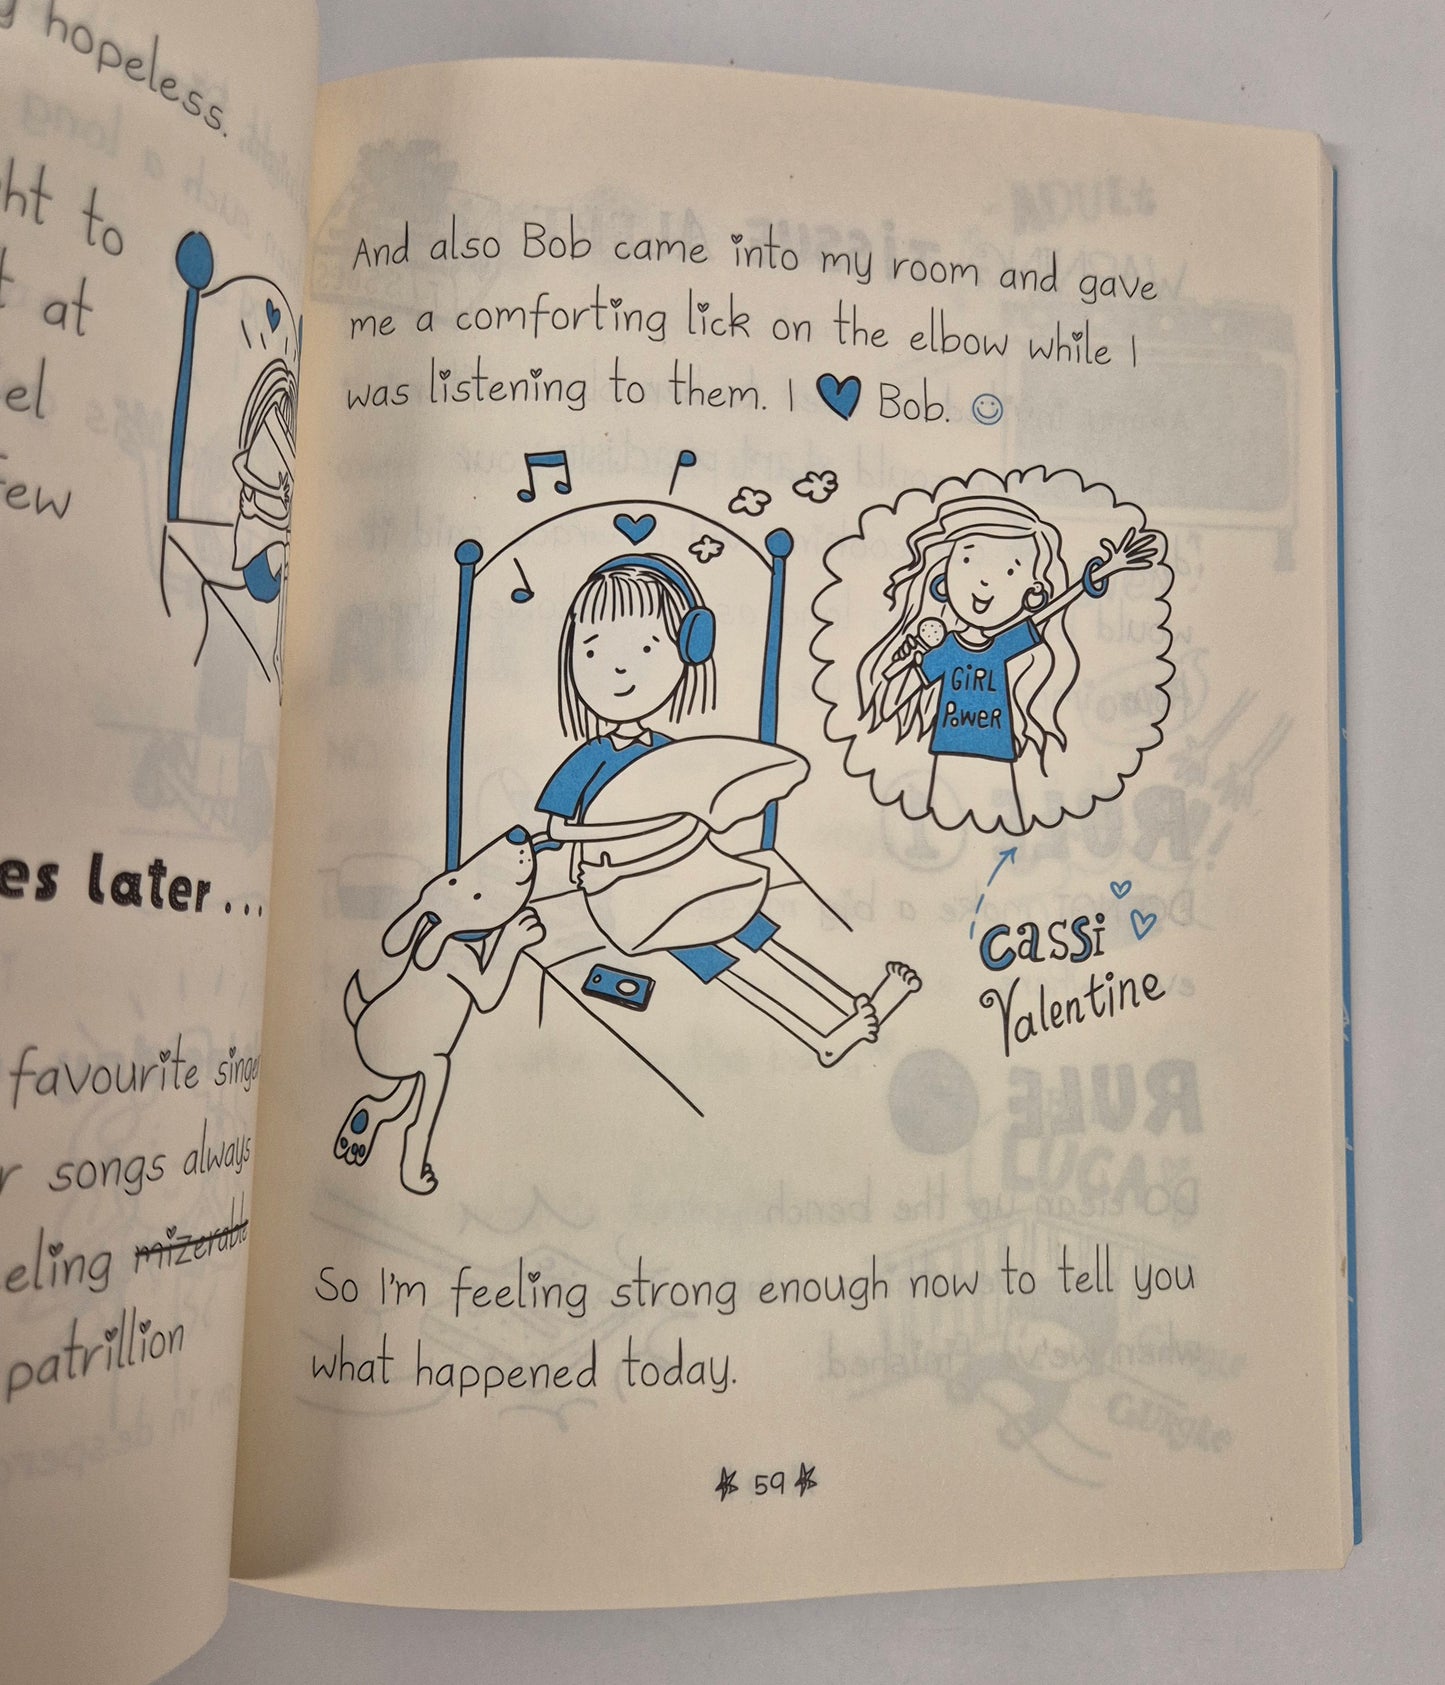 hopeless.
to
at
few
later...
favourite
songs always
mizerable
patrillion
And also Bob came into my room and gave
me a comforting lick on the elbow while I
was listening to them. I ♥ Bob. ☺
GiRL
PoweR
cassi
Valentine
So I'm feeling strong enough now to tell you
what happened today.
59